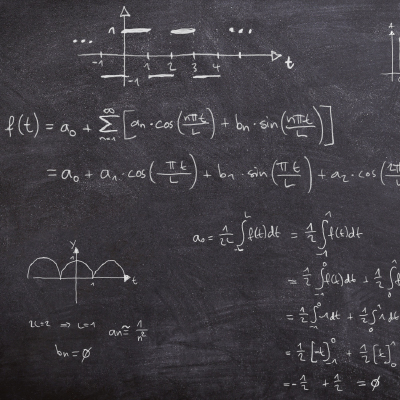 ... 1 ...
-1 1 2 3 4 t
-1
f(t) = a₀ + ∞ Σ n=1 [aₙ·cos(nπt/L) + bₙ·sin(nπt/L)]
= a₀ + a₁·cos(πt/L) + b₁·sin(πt/L) + a₂·cos(
a₀ = 1/2L ∫ f(t)dt = 1/2 ∫ f(t)dt
= 1/2 ∫ f(t)dt + 1/2 ∫
= 1/2 ∫ 1dt + 1/2 ∫ 1dt
= 1/2 [-t] + 1/2 [t]
= -1/2 + 1/2 = ∅
y
1
1 t
2L=2 ⇒ L=1 aₙ≅ 1/n²
bₙ=∅